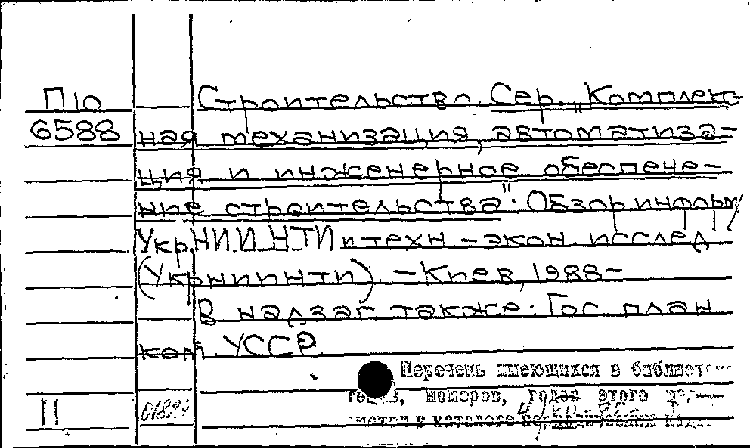 П10 Строительство. Сер. „Комплекс-
6588 ная механизация, автоматиза-
ция и инженерное обеспече-
ние строительства": Обзор. информ/
Укр.НИИНТИ и техн-экон. исслед
(УкрНИИНТИ) - Киев, 1988-
В надзаг также: Гос план.
ком. УССР
Перечень имеющихся в библиот
номеров, годов этого
II в каталоге